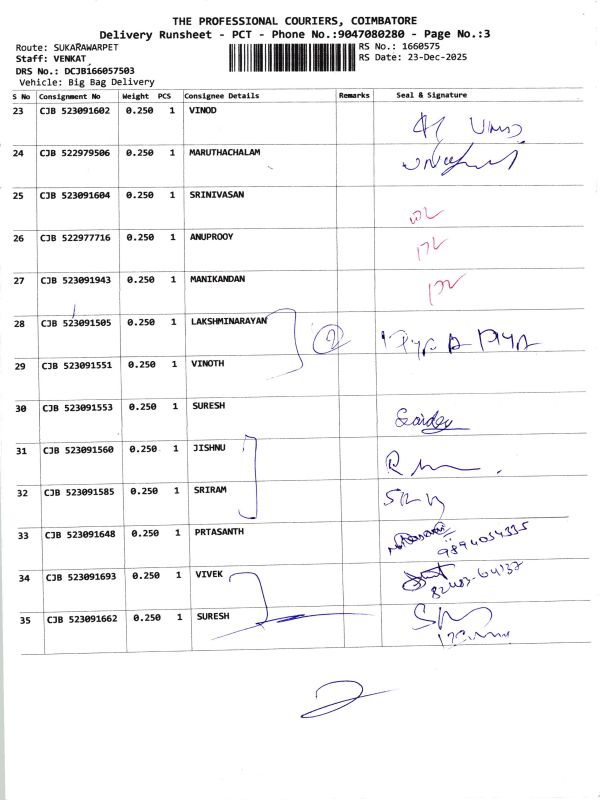 THE PROFESSIONAL COURIERS, COIMBATORE
Delivery Runsheet - PCT - Phone No.:9047080280 - Page No.:3
Route: SUKARAWARPET
RS No.: 1660575
Staff: VENKAT
RS Date: 23-Dec-2025
DRS No.: DCJB166057503
Vehicle: Big Bag Delivery
S No Consignment No Weight PCS Consignee Details Remarks Seal & Signature
23 CJB 523091602 0.250 1 VINOD
24 CJB 522979506 0.250 1 MARUTHACHALAM
25 CJB 523091604 0.250 1 SRINIVASAN
26 CJB 522977716 0.250 1 ANUPROOY
27 CJB 523091943 0.250 1 MANIKANDAN
28 CJB 523091505 0.250 1 LAKSHMINARAYAN 2
29 CJB 523091551 0.250 1 VINOTH
30 CJB 523091553 0.250 1 SURESH
31 CJB 523091560 0.250 1 JISHNU
32 CJB 523091585 0.250 1 SRIRAM
33 CJB 523091648 0.250 1 PRTASANTH
34 CJB 523091693 0.250 1 VIVEK
35 CJB 523091662 0.250 1 SURESH